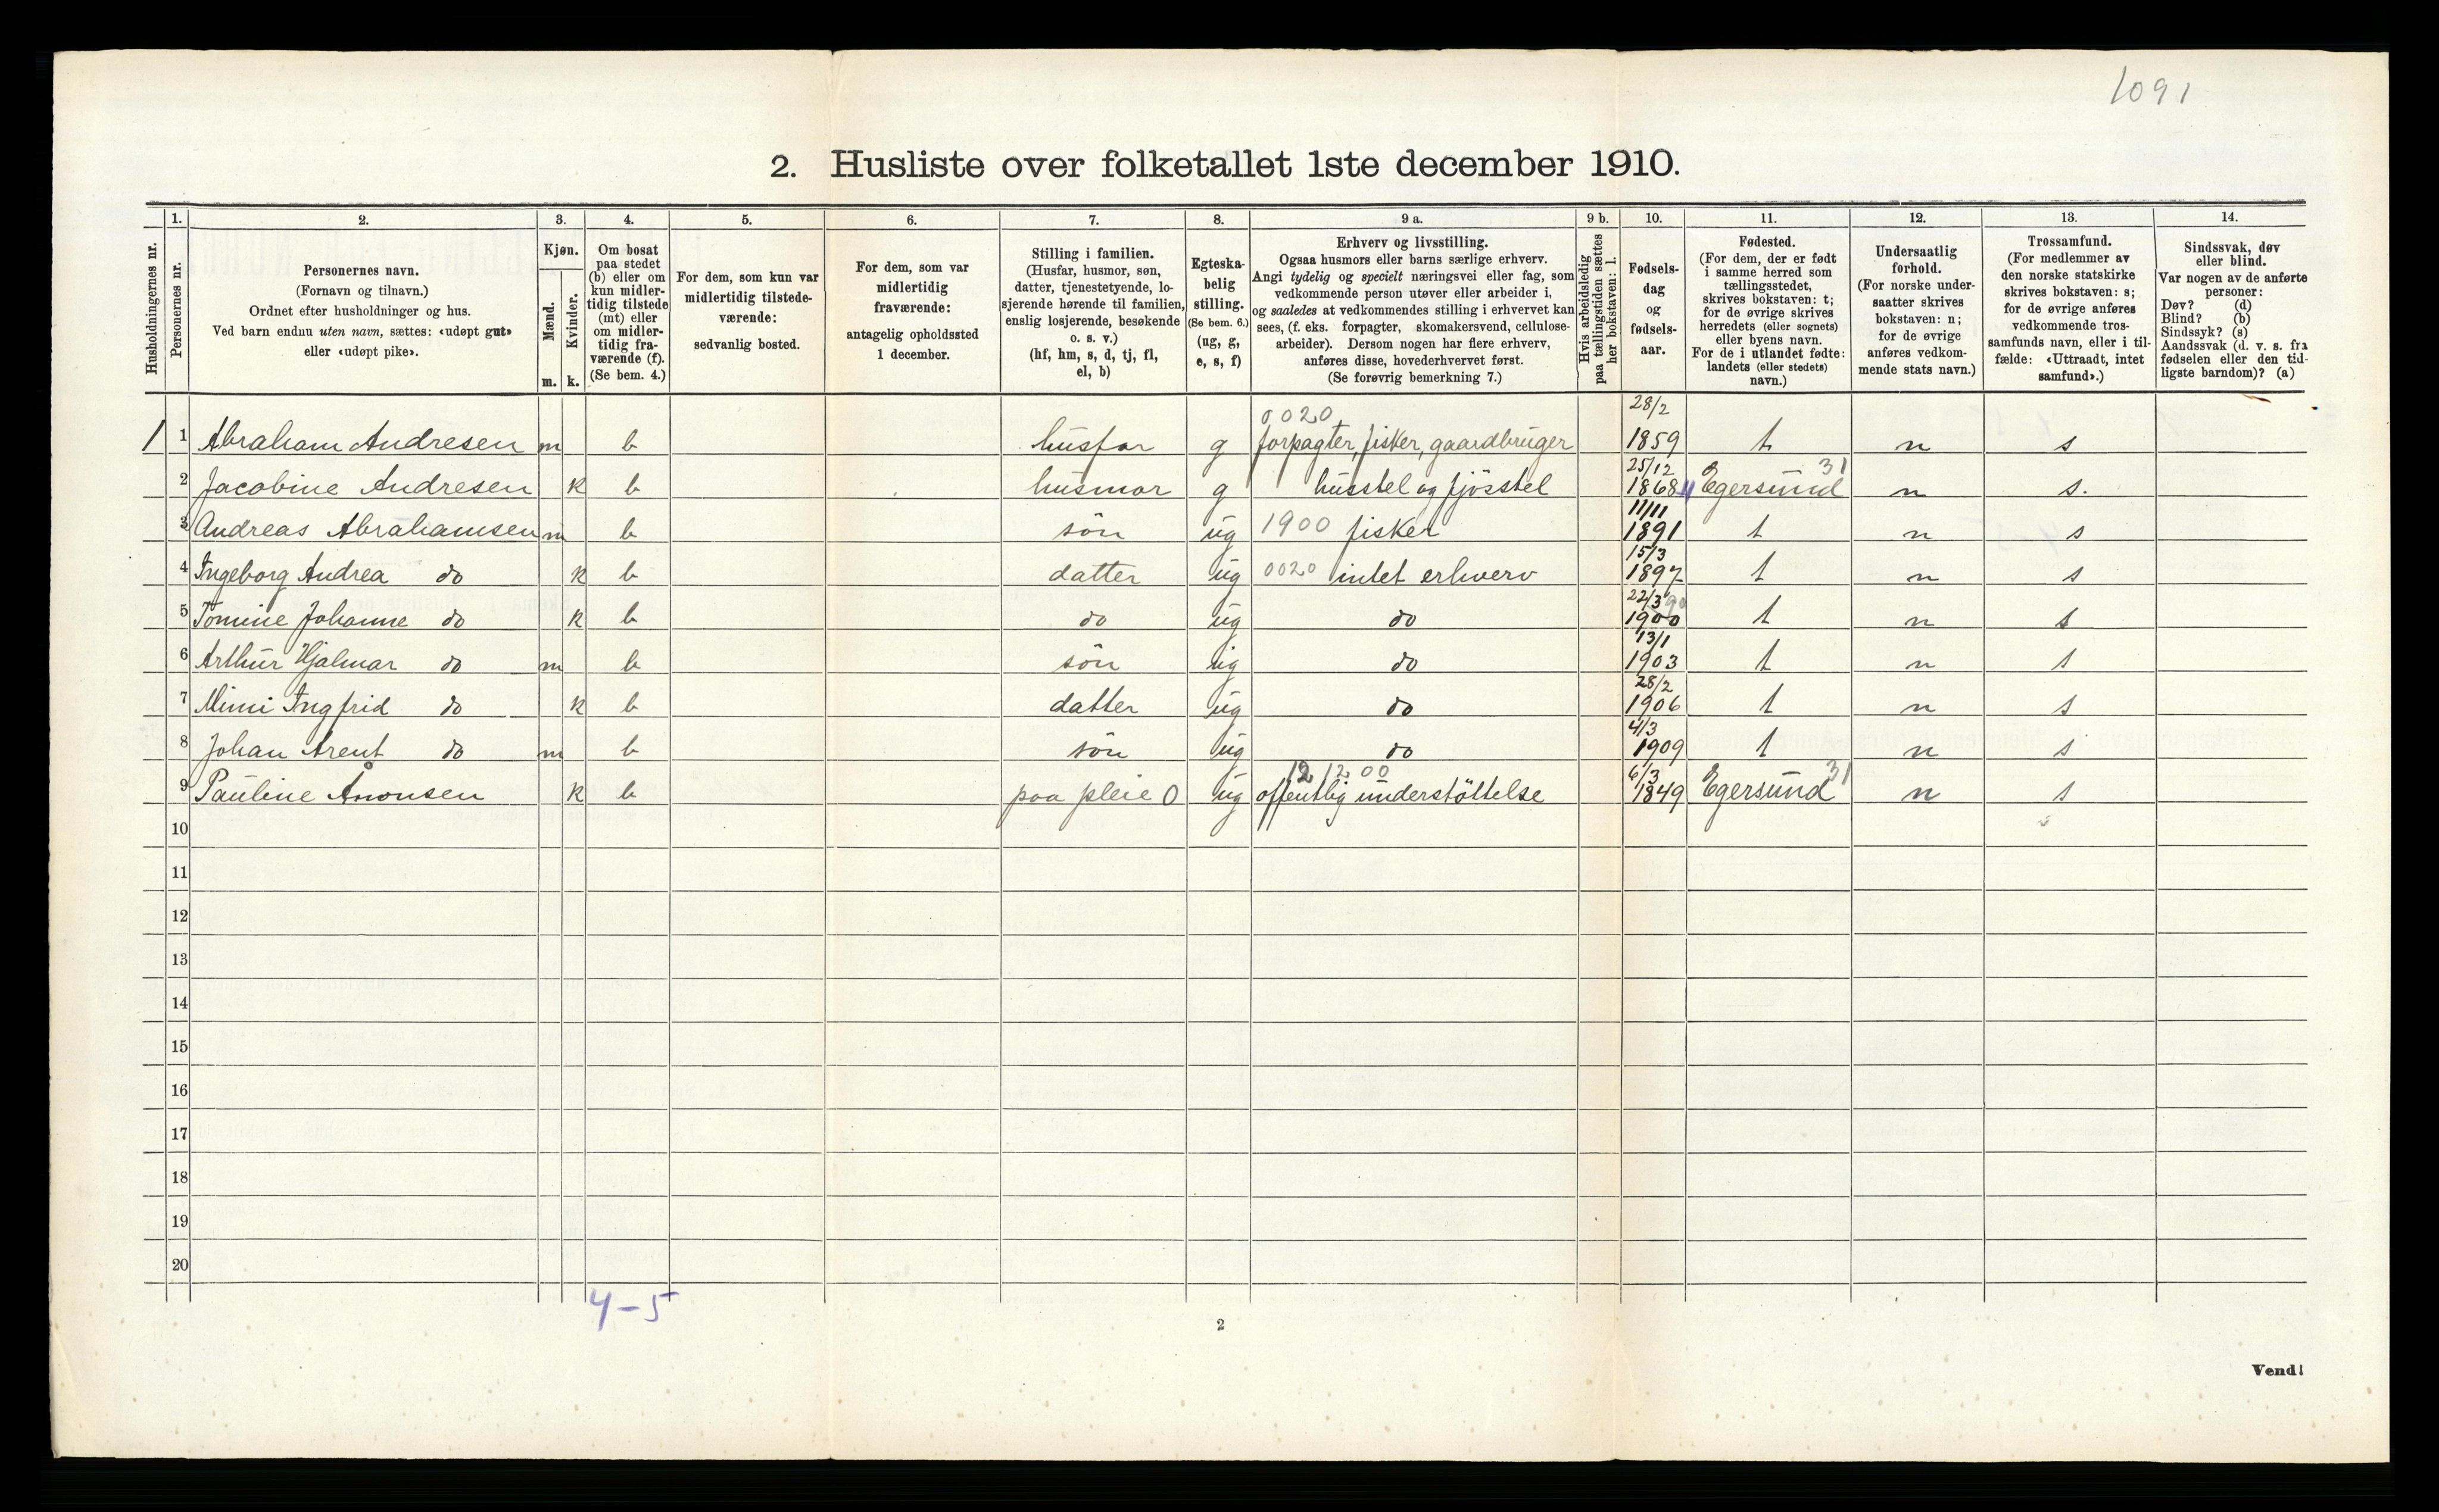 1091
2. Husliste over folketallet 1ste december 1910.
Husholdningernes nr.
1.
Personernes nr.
2.
Personernes navn.
(Fornavn og tilnavn.)
Ordnet efter husholdninger og hus.
Ved barn endnu uten navn, sættes: «udøpt gut»
eller «udøpt pike».
3.
Kjøn.
Mænd.
Kvinder.
m. k.
4.
Om bosat
paa stedet
(b) eller om
kun midler-
tidig tilstede
(mt) eller
om midler-
tidig fra-
værende (f).
(Se bem. 4.)
5.
For dem, som kun var
midlertidig tilstede-
værende:
sedvanlig bosted.
6.
For dem, som var
midlertidig
fraværende:
antagelig opholdssted
1 december.
7.
Stilling i familien.
(Husfar, husmor, søn,
datter, tjenestetyende, lo-
sjerende hørende til familien,
enslig losjerende, besøkende
o. s. v.)
(hf, hm, s, d, tj, fl,
el, b)
8.
Egteska-
belig
stilling.
(Se bem. 6.)
(ug, g,
e, s, f)
9 a.
Erhverv og livsstilling.
Ogsaa husmors eller barns særlige erhverv.
Angi tydelig og specielt næringsvei eller fag, som
vedkommende person utøver eller arbeider i,
og saaledes at vedkommendes stilling i erhvervet kan
sees, (f. eks. forpagter, skomakersvend, cellulose-
arbeider). Dersom nogen har flere erhverv,
anføres disse, hovederhvervet først.
(Se forøvrig bemerkning 7.)
9 b.
Hvis arbeidsledig
paa tællingstiden sættes
her bokstaven: l.
10.
Fødsels-
dag
og
fødsels-
aar.
11.
Fødested.
(For dem, der er født
i samme herred som
tællingsstedet,
skrives bokstaven: t;
for de øvrige skrives
herredets (eller sognets)
eller byens navn.
For de i utlandet fødte:
landets (eller stedets)
navn.)
12.
Undersaatlig
forhold.
(For norske under-
saatter skrives
bokstaven: n;
for de øvrige
anføres vedkom-
mende stats navn.)
13.
Trossamfund.
(For medlemmer av
den norske statskirke
skrives bokstaven: s;
for de øvrige anføres
vedkommende tros-
samfunds navn, eller i til-
fælde: «Uttraadt, intet
samfund».)
14.
Sindssvak, døv
eller blind.
Var nogen av de anførte
personer:
Døv? (d)
Blind? (b)
Sindssyk? (s)
Aandssvak (d. v. s. fra
fødselen eller den tid-
ligste barndom)? (a)
0020 28/2
1 1 Abraham Andresen m b husfar g forpagter, fisker, gaardbruger 1859 t n s
25/12 31
2 Jacobine Andresen k b husmor g husstel og fjösstel 1868 Egersund n s.
11/11
3 Andreas Abrahamsen m b sön ug 1900 fisker 1891 t n s
15/3
4 Ingeborg Andrea do k b datter ug 0020 intet erhverv 1897 t n s
22/3
5 Tomine Johanne do k b do ug do 1900 t n s
13/1
6 Arthur Hjalmar do m b sön ug do 1903 t n s
28/2
7 Mimi Ingfrid do k b datter ug do 1906 t n s
4/3
8 Johan Arent do m b sön ug do 1909 t n s
12 12 00 6/3 31
9 Pauline Ånonsen k b paa pleie 0 ug offentlig understöttelse 1849 Egersund n s
10
11
12
13
14
15
16
17
18
19
20
4-5
2
Vend!